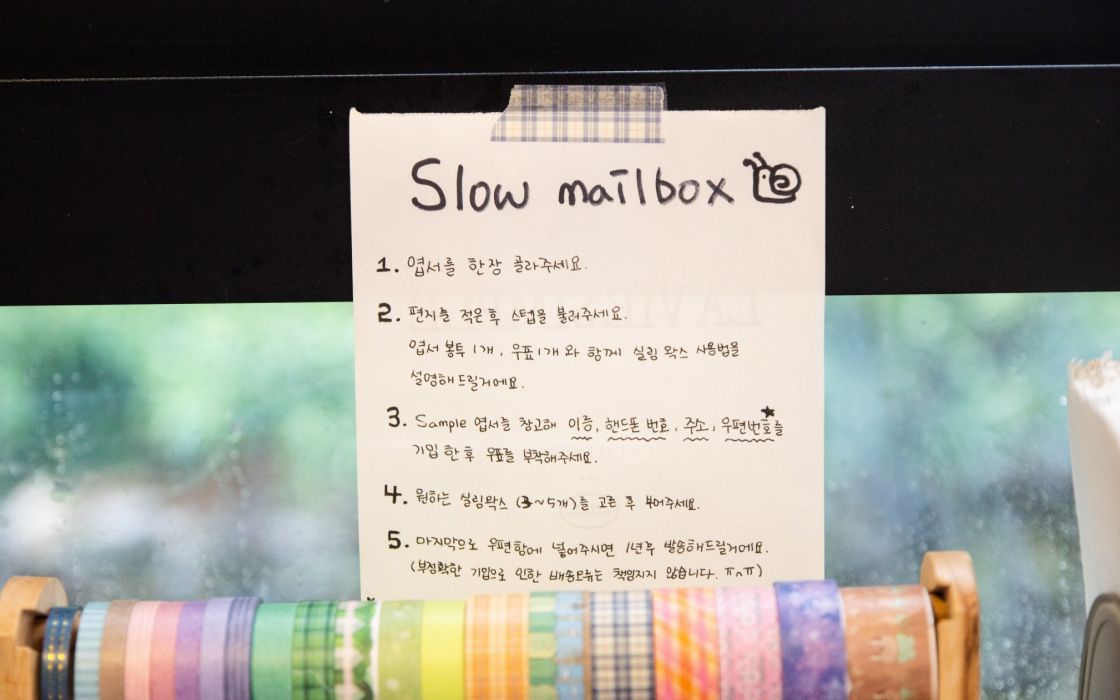 Slow mailbox
1. 엽서를 한장 골라주세요.
2. 편지를 적은 후 스텝을 불러주세요.
엽서 봉투 1개, 우표 1개 와 함께 실링 왁스 사용법을
설명해 드릴거에요.
3. Sample 엽서를 참고해 이름, 핸드폰 번호, 주소, 우편번호를
기입 한 후 우표를 부착해주세요.
4. 원하는 실링왁스 (3~5개)를 고른 후 부어주세요.
5. 마지막으로 우편함에 넣어주시면 1년후 발송해드릴거에요.
(부정확한 기입으로 인한 배송오류는 책임지지 않습니다. ㅠㅅㅠ)